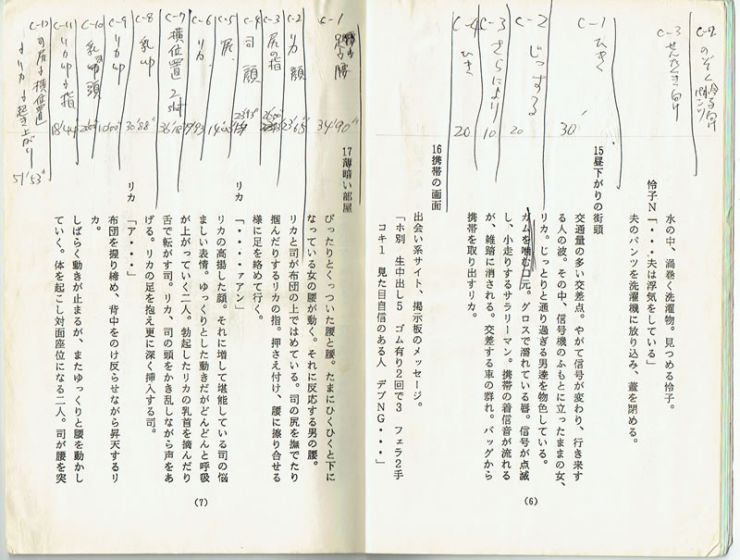 C-2 のぞく怜子向け
C-3 せんたくき向け
水の中、渦巻く洗濯物。見つめる怜子。
怜子N「・・・夫は浮気をしている」
夫のパンツを洗濯機に放り込み、蓋を閉める。
C-1 ひき 30
C-2 じっする 20
C-3 さらにより 10
C-4 ひき 20
15 昼下がりの街頭
交通量の多い交差点。やがて信号が変わり、行き来す
る人の波。その中、信号機のふもとに立ったままの女、
リカ。じっとりと通り過ぎる男達を物色している。
ガムを噛む口元。グロスで濡れている唇。信号が点滅
し、小走りするサラリーマン。携帯の着信音が流れる
が、雑踏に消される。交差する車の群れ。バッグから
携帯を取り出すリカ。
16 携帯の画面
出会い系サイト、掲示板のメッセージ。
「ホ別 生中出し5 ゴム有り2回で3 フェラ2手
コキ1 見た目自信のある人 デブNG・・・」
(6)
C-1 34'90"
C-2 リカ 顔 23'65"
C-3 尻の指
C-4 司 顔
C-5 尻
C-6 リカ
C-7 横位置 2shot
C-8 乳 up 30'88"
C-9 リカup
C-10 乳頭
C-11 リカup 指
C-12 司尻 横位置
リカ 起き上がり 51'53"
17 薄暗い部屋
ぴったりとくっついた腰と腰。たまにひくひくと下に
なっている女の腰が動く。それに反応する男の腰。
リカと司が布団の上ではめている。司の尻を撫でたり
掴んだりするリカの指。押さえ付け、腰に擦り合せる
様に足を絡めて行く。
リカ「・・・・ァアン」
リカの高揚した顔。それに増して堪能している司の悩
ましい表情。ゆっくりとした動きだがどんどんと呼吸
が上がっていく二人。勃起したリカの乳首を摘んだり
舌で転がす司。リカ、司の頭をかき乱しながら声をあ
げる。リカの足を抱え更に深く挿入する司。
リカ「ア・・・・」
布団を握り締め、背中をのけ反らせながら昇天するリ
カ。
しばらく動きが止まるが、またゆっくりと腰を動かし
ていく。体を起こし対面座位になる二人。司が腰を突
(7)